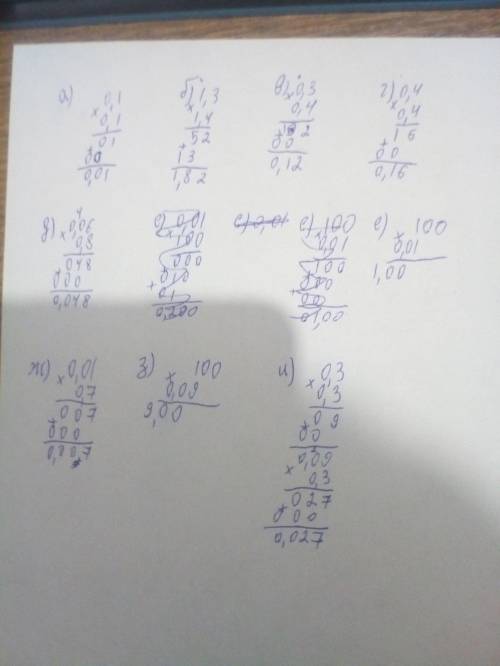 а) 0,1
× 0,1
01
+ 00
0,01
б) 1,3
× 1,4
52
+ 13
1,82
в) 0,3
× 0,4
12
+ 00
0,12
г) 0,4
× 0,4
16
+ 00
0,16
д) 0,06
× 0,8
048
+ 000
0,048
е) 0,01
100
000
+ 010
е) 0,01
е) 100
0,01
100
+ 000
01,00
е) 100
× 0,01
1,00
ж) 0,01
× 0,7
007
+ 000
0,007
з) 100
× 0,09
9,00
и) 0,3
× 0,3
09
+ 00
0,09
× 0,3
027
+ 000
0,027